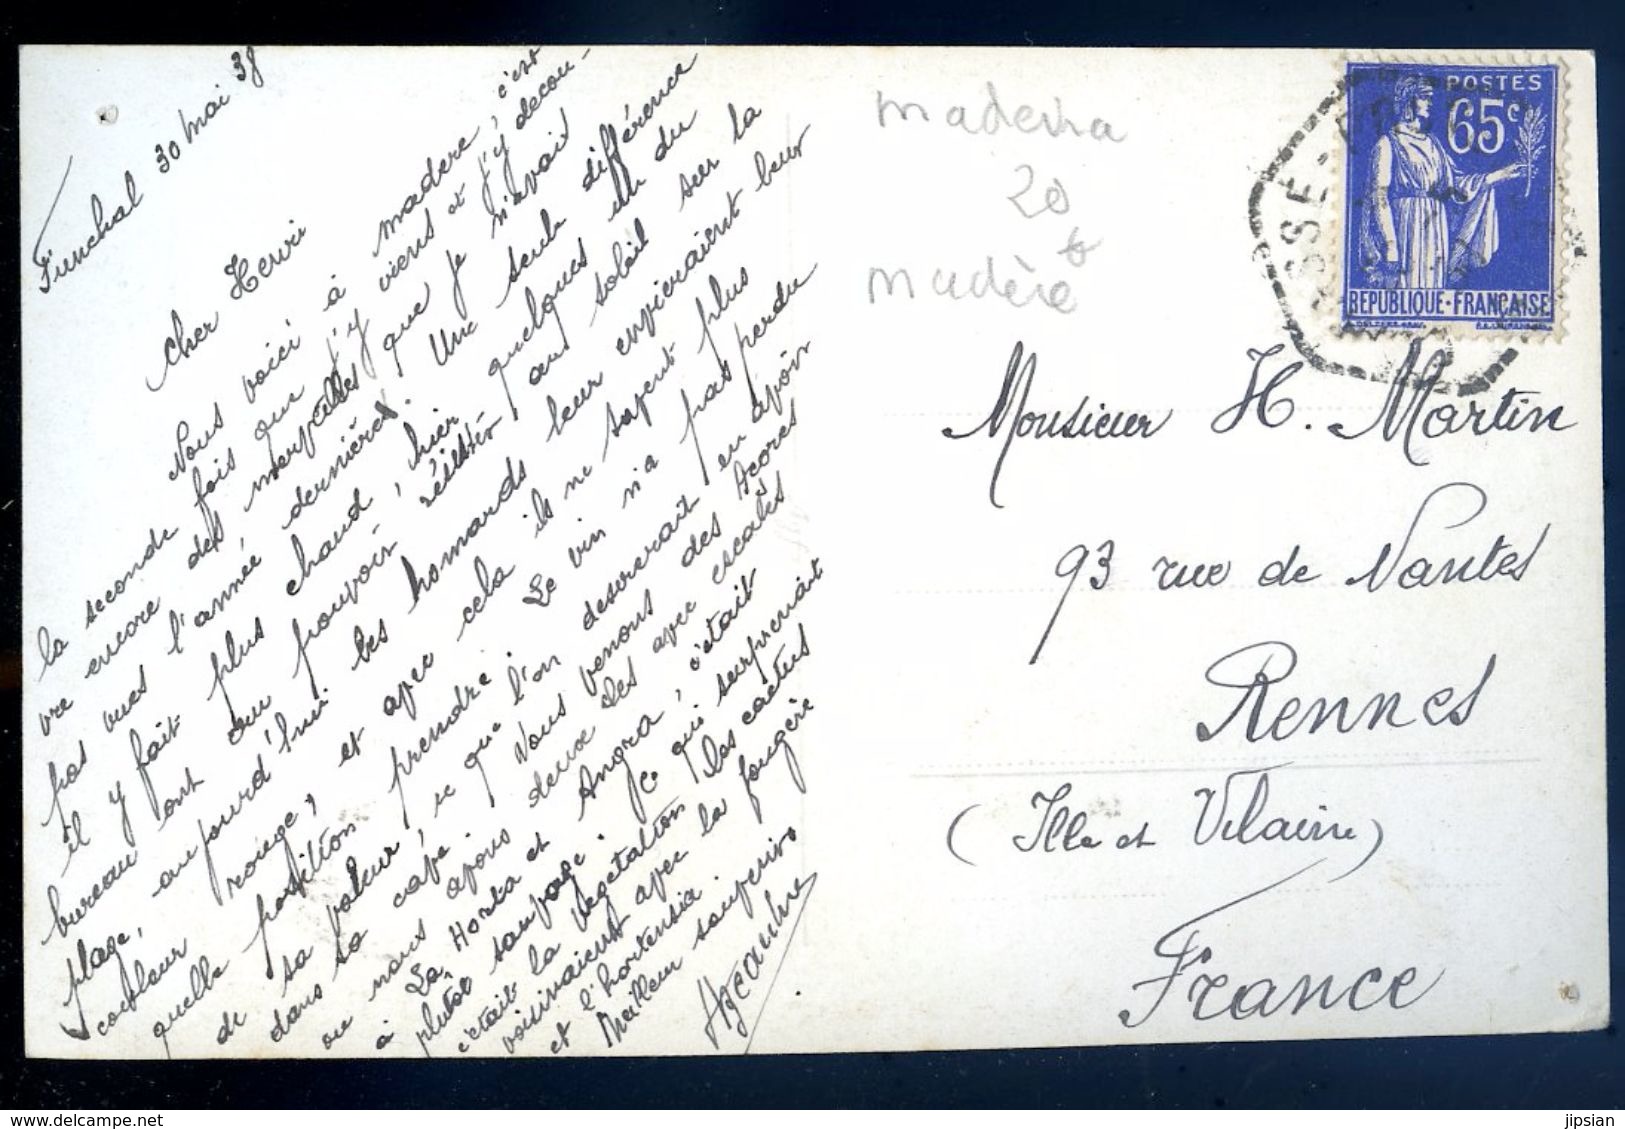 Funchal 30 mai 38
Cher Hervé
Nous voici à madère, c'est
la seconde fois que j'y viens et j'y décou-
vre encore des merveilles que je n'avais
pas vues l'année dernière. Une seule différence
il y fait plus chaud, hier quelques uns du
bureau ont pu pouvoir résister au soleil sur la
plage, aujourd'hui les homards leur envieraient leur
couleur rouge, et avec cela ils ne savent plus
quelle position prendre. Le vin n'a pas perdu
de sa valeur, ce que l'on desirerait en avoir
dans sa cape. Nous venons des Açores
où nous avons deux escales
à La Horta et Angra, c'était
plutôt sauvage. Ce qui surprenait
c'était la végétation, les cactus
voisinaient avec la fougère
et l'hortensia.
Meilleur souvenir
madeira
20 €
madère
POSTES
65c
REPUBLIQUE-FRANÇAISE
Monsieur H. Martin
93 rue de Nantes
Rennes
(Ille et Vilaine)
France
jipsian